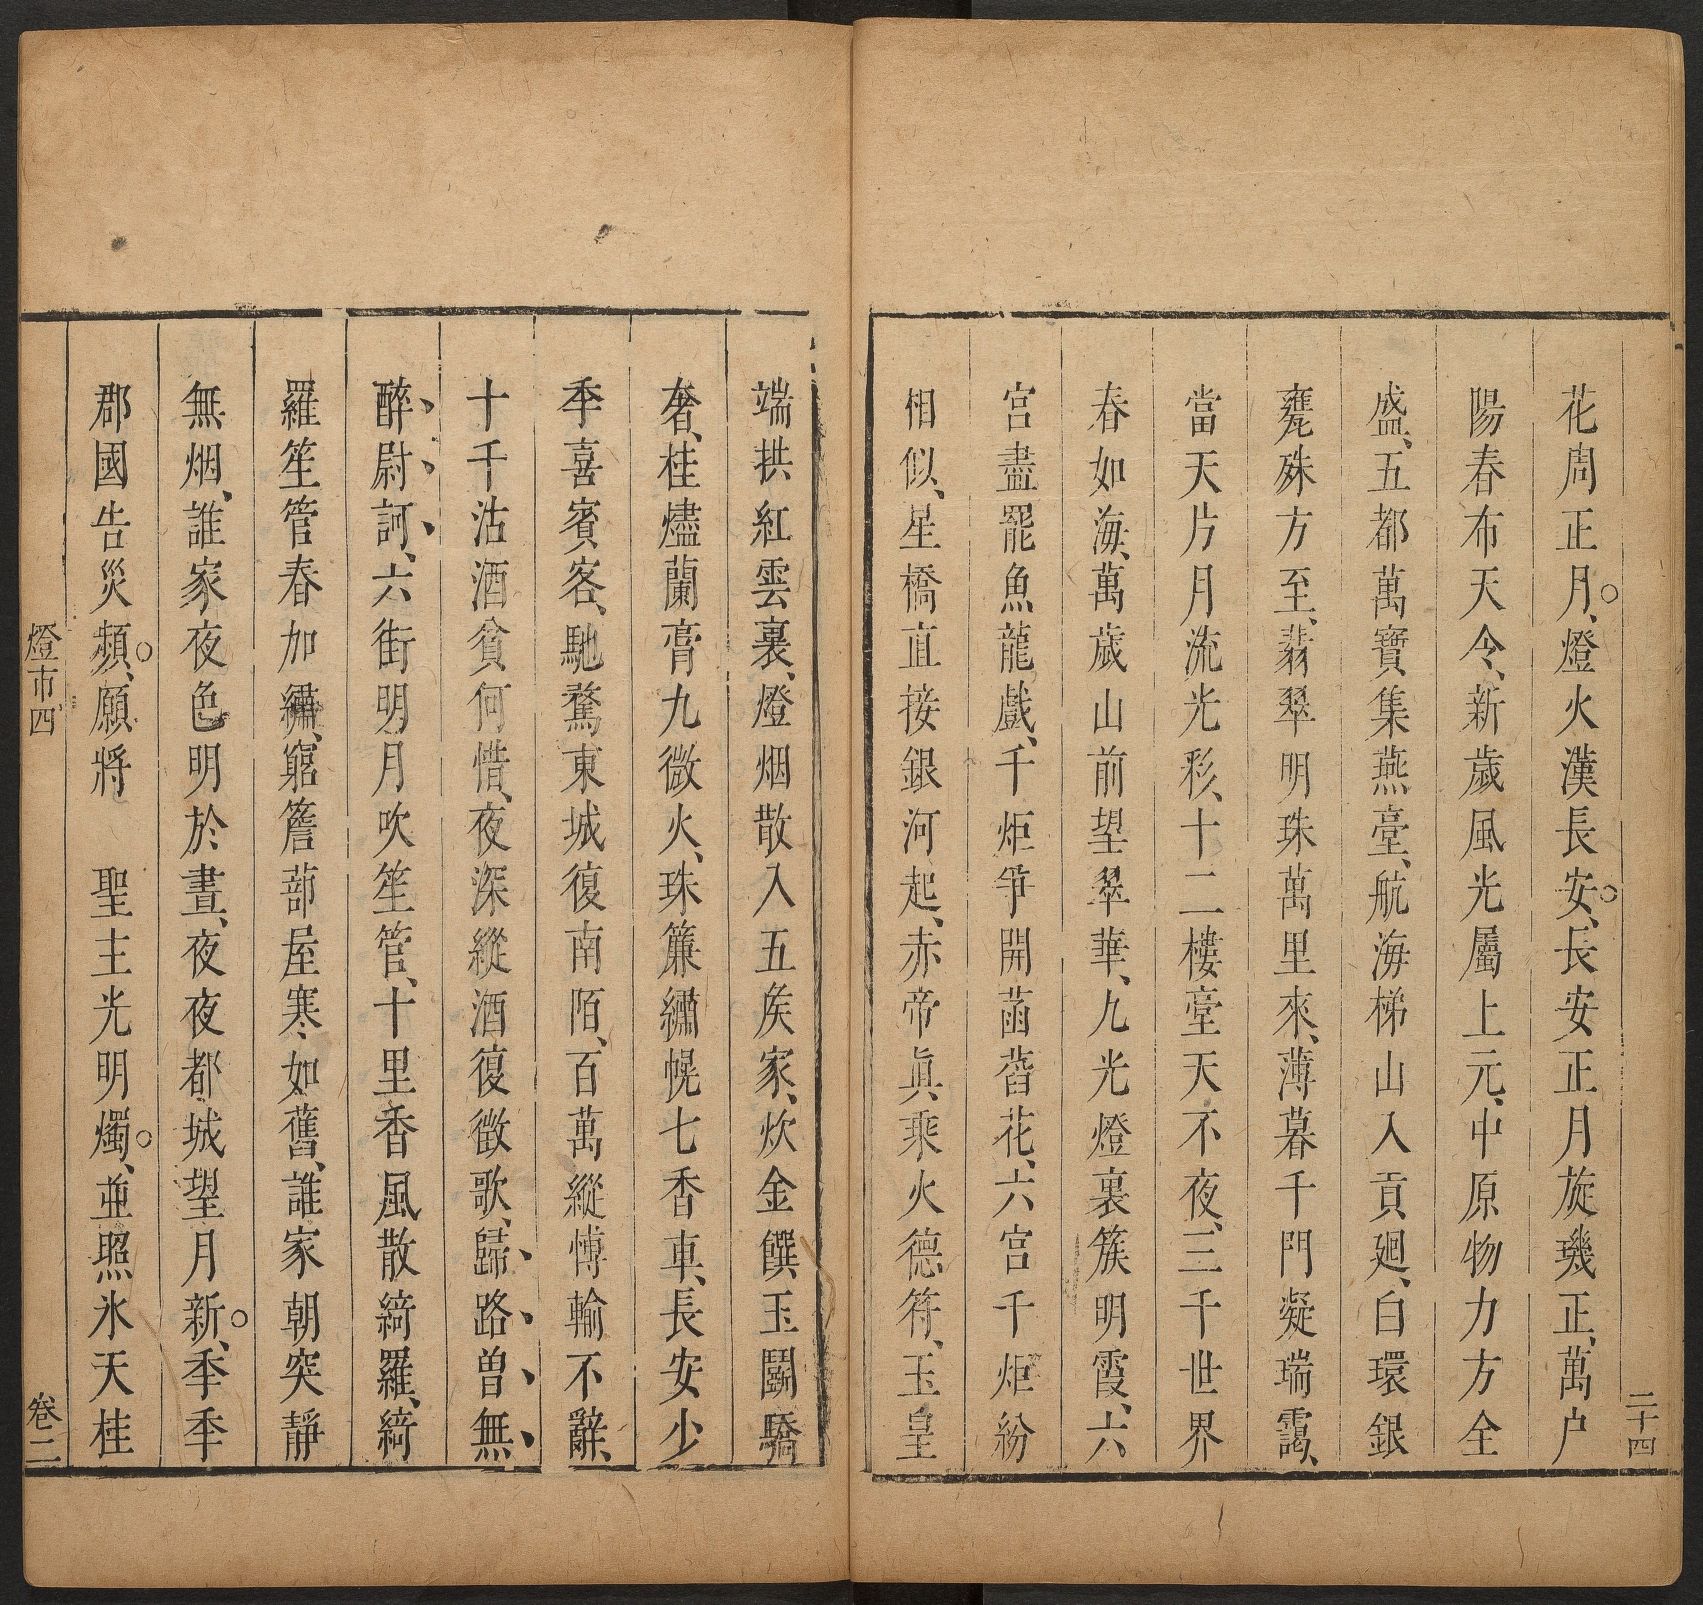 二十四
花周正月、燈火漢長安、長安正月旋璣正、萬户
陽春布天令、新歲風光屬上元、中原物力方全
盛、五都萬寶集燕臺、航海梯山入貢廻、白環銀
甕殊方至、翡翠明珠萬里來、薄暮千門凝瑞靄、
當天片月流光彩、十二樓臺天不夜、三千世界
春如海、萬歲山前望翠華、九光燈裏簇明霞、六
宮盡罷魚龍戲、千炬爭開菡萏花、六宮千炬紛
相似、星橋直接銀河起、赤帝眞乘火德符、玉皇
端拱紅雲裏、燈烟散入五矦家、炊金饌玉鬪驕
奢、桂燼蘭膏九微火、珠簾繡幌七香車、長安少
季喜賓客、馳騖東城復南陌、百萬縱愽輸不辭、
十千沽酒貧何惜、夜深縱酒復徵歌、歸路曽無
醉尉訶、六街明月吹笙管、十里香風散綺羅、綺
羅笙管春加繡、窮簷蔀屋寒如舊、誰家朝突靜
無烟、誰家夜色明於晝、夜夜都城望月新、季季
郡國告災頻、願將　聖主光明燭、並照氷天桂
燈市四
卷二